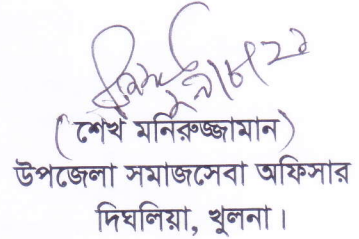 (শেখ মনিরুজ্জামান)
উপজেলা সমাজসেবা অফিসার
দিঘলিয়া, খুলনা।